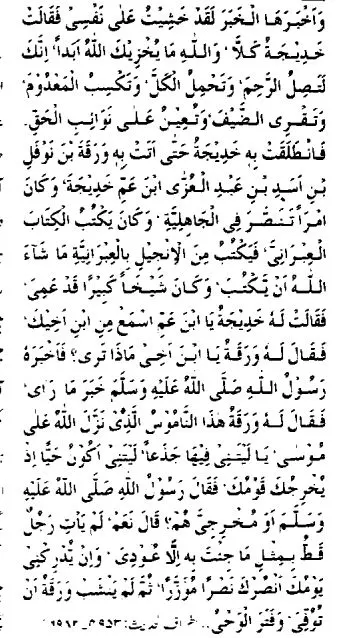 وَاَخْبَرَهَا الْخَبَرَ لَقَدْ خَشِيْتُ عَلٰى نَفْسِىْ فَقَالَتْ
خَدِيْجَةُ كَلَّا وَاللّٰهِ مَا يُخْزِيْكَ اللّٰهُ اَبَدًا اِنَّكَ
لَتَصِلُ الرَّحِمَ، وَتَحْمِلُ الْكَلَّ، وَتَكْسِبُ الْمَعْدُوْمَ،
وَتَقْرِى الضَّيْفَ، وَتُعِيْنُ عَلٰى نَوَائِبِ الْحَقِّ.
فَانْطَلَقَتْ بِهِ خَدِيْجَةُ حَتّٰى اَتَتْ بِهِ وَرَقَةَ بْنَ نَوْفَلِ
بْنِ اَسَدِ بْنِ عَبْدِ الْعُزّٰى ابْنَ عَمِّ خَدِيْجَةَ، وَكَانَ
امْرَأً تَنَصَّرَ فِى الْجَاهِلِيَّةِ، وَكَانَ يَكْتُبُ الْكِتَابَ
الْعِبْرَانِىَّ، فَيَكْتُبُ مِنَ الْاِنْجِيْلِ بِالْعِبْرَانِيَّةِ مَا شَآءَ
اللّٰهُ اَنْ يَّكْتُبَ، وَكَانَ شَيْخًا كَبِيْرًا قَدْ عَمِىَ،
فَقَالَتْ لَهُ خَدِيْجَةُ يَا ابْنَ عَمِّ اسْمَعْ مِنِ ابْنِ اَخِيْكَ،
فَقَالَ لَهُ وَرَقَةُ يَا ابْنَ اَخِىْ مَاذَا تَرٰى؟ فَاَخْبَرَهُ
رَسُوْلُ اللّٰهِ صَلَّى اللّٰهُ عَلَيْهِ وَسَلَّمَ خَبَرَ مَا رَاٰى،
فَقَالَ لَهُ وَرَقَةُ هٰذَا النَّامُوْسُ الَّذِىْ نَزَّلَ اللّٰهُ عَلٰى
مُوْسٰى، يَا لَيْتَنِىْ فِيْهَا جَذَعًا، لَيْتَنِىْ اَكُوْنُ حَيًّا اِذْ
يُخْرِجُكَ قَوْمُكَ، فَقَالَ رَسُوْلُ اللّٰهِ صَلَّى اللّٰهُ عَلَيْهِ
وَسَلَّمَ اَوَ مُخْرِجِىَّ هُمْ؟ قَالَ نَعَمْ، لَمْ يَاْتِ رَجُلٌ
قَطُّ بِمِثْلِ مَا جِئْتَ بِهِ اِلَّا عُوْدِىَ، وَاِنْ يُّدْرِكْنِىْ
يَوْمُكَ اَنْصُرْكَ نَصْرًا مُّؤَزَّرًا، ثُمَّ لَمْ يَنْشَبْ وَرَقَةُ اَنْ
تُوُفِّىَ، وَفَتَرَ الْوَحْىُ.